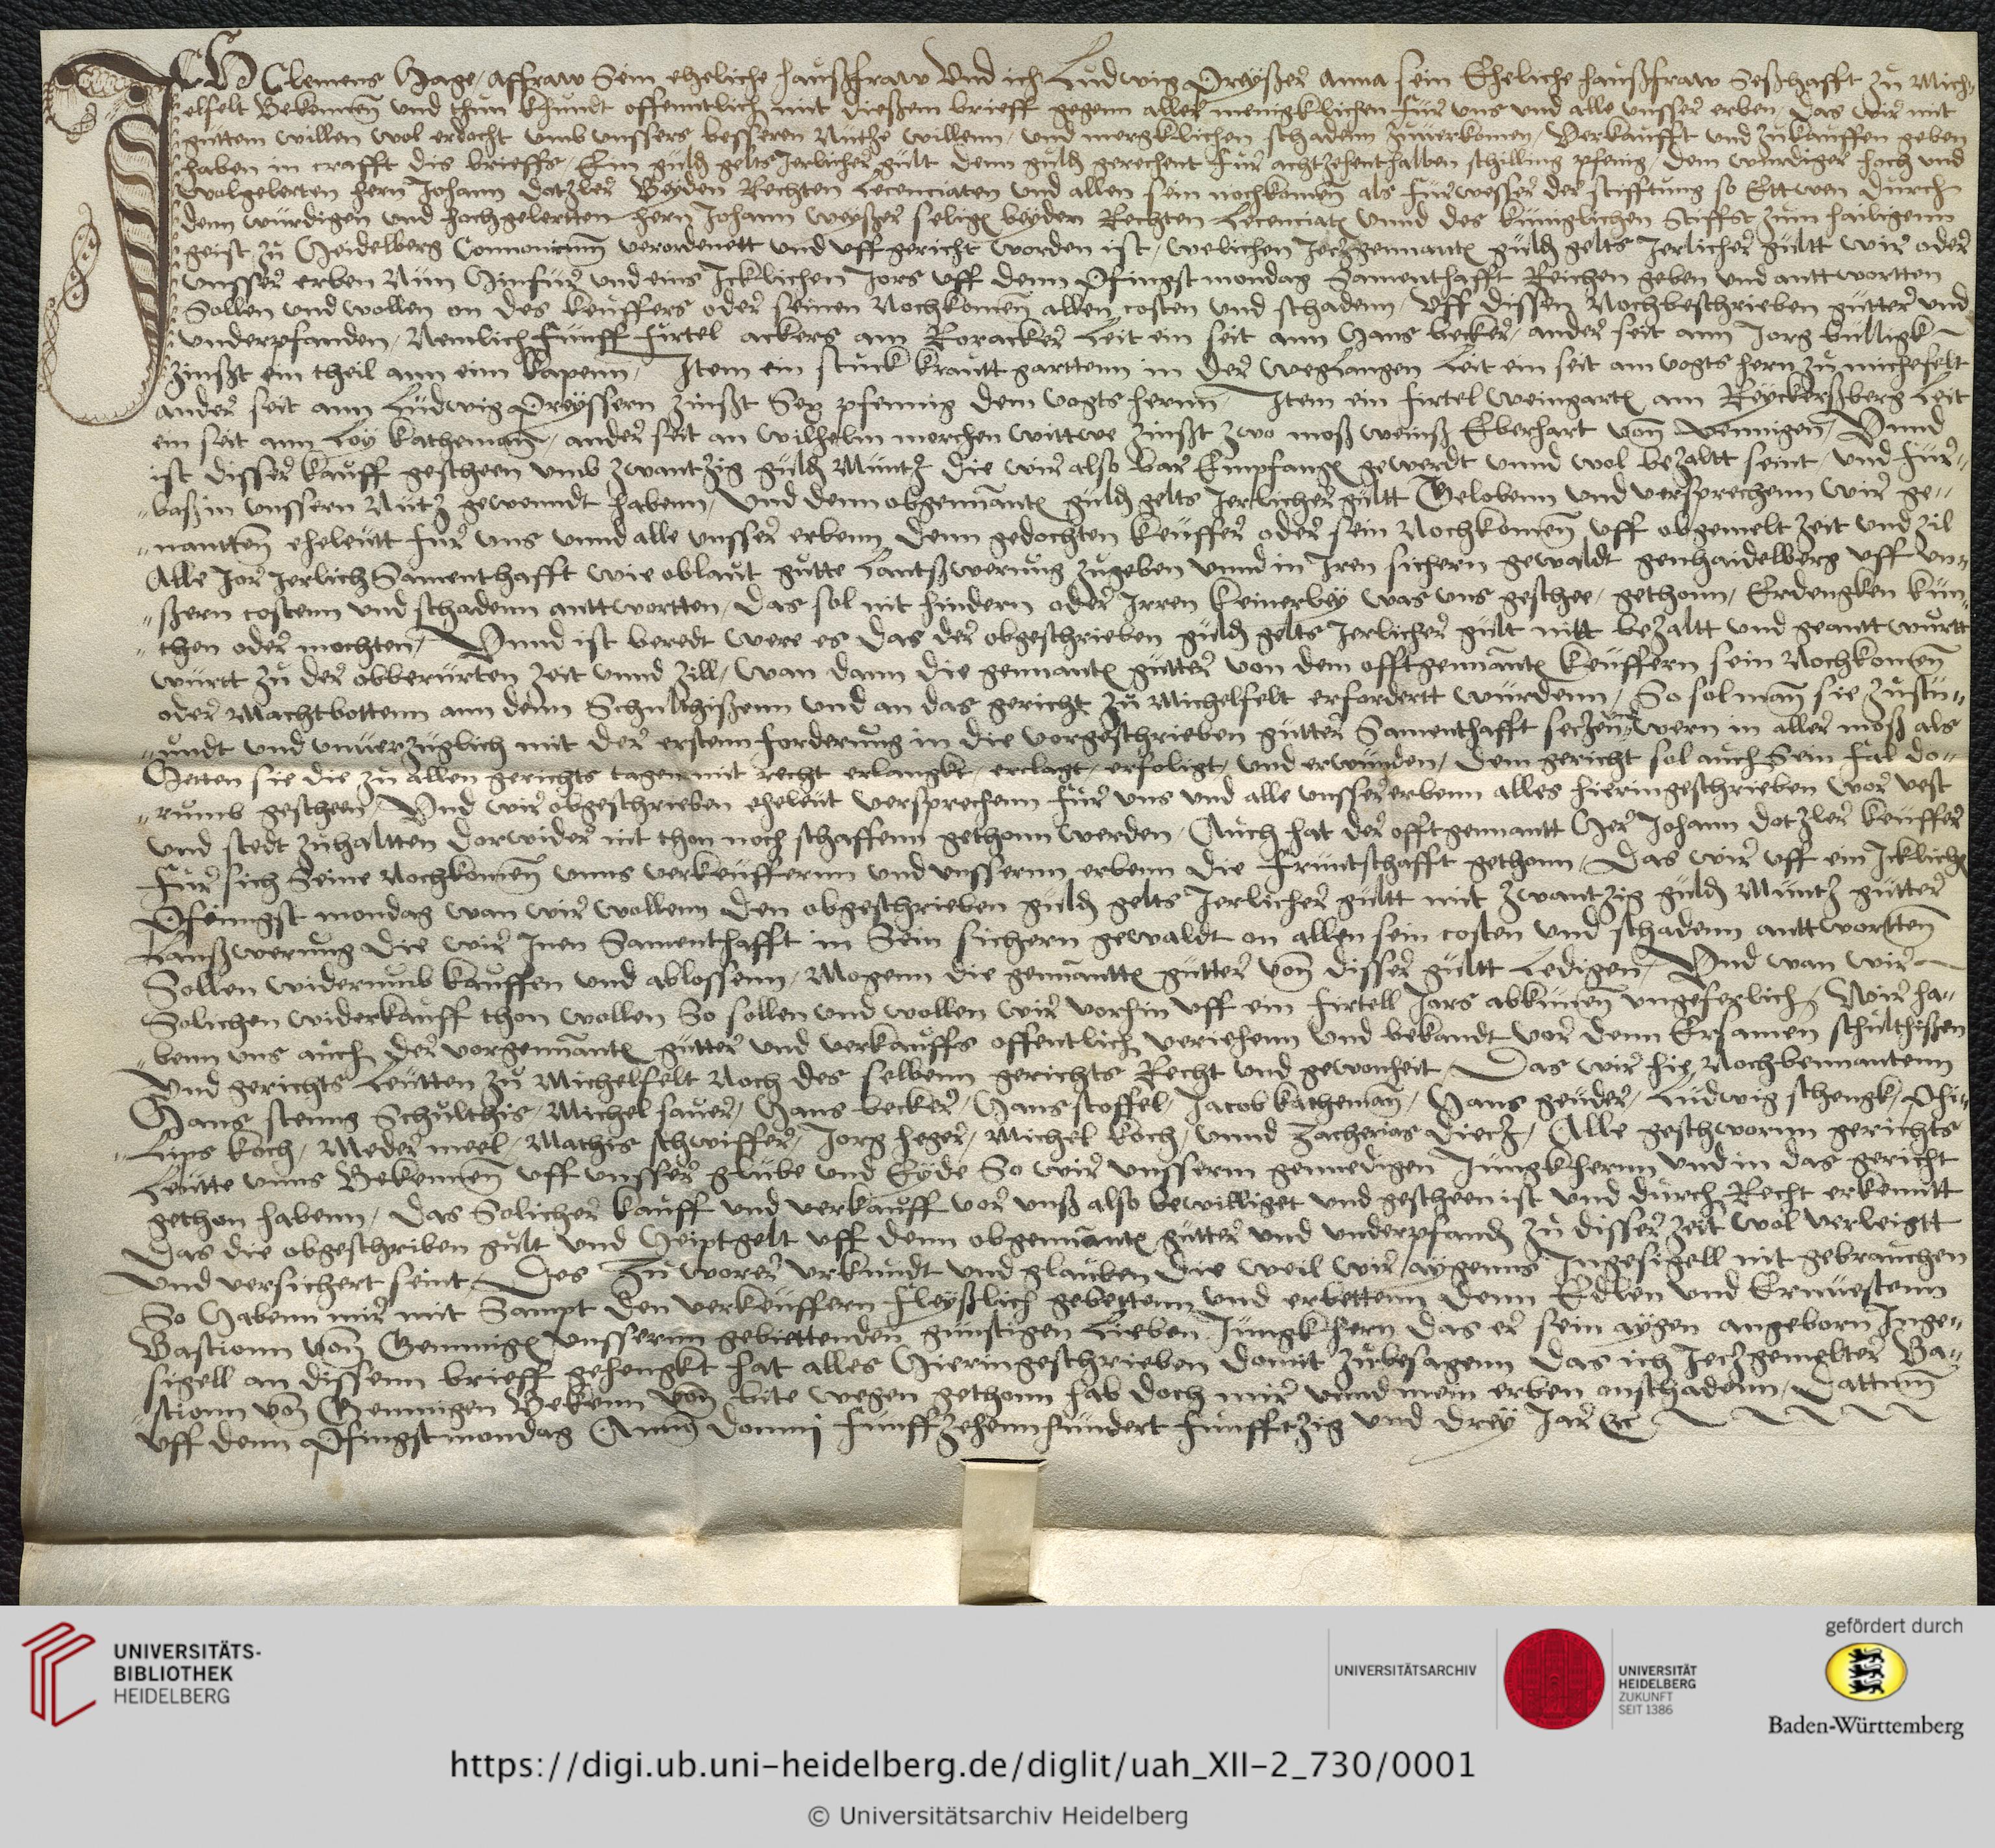 ICH Clemens Hage / Affraw Sein eheliche haußfraw Vnd ich Ludwig Preyßer Anna sein Eheliche haußfraw Seßhafft zu Mich-
elfelt Bekennen vnd thun khundt offenntlich mit dießem brieff gegenn aller menigklichen für vns vnd alle vnsser erben / das wir mit
guttem willen wol erdocht vmb vnssers besseren Nuthe willenn / vnd mergklichen schadenn zuuerkomen / Verkaufft vnd zukauffen geben
haben in crafft dis brieffs / Ein guld gelts Jerlicher gült denn guld gerechent für achtzehenthalben schilling pfenig / dem würdiger hoch vnd
wolgelerten hern Johann dotzler Beyden Rechten Licenciaten vnd allen sein nochkomen als fürwesser der stifftung so Ettwen durch
denn würdigen vnd hochgelertten hern Johann weyßer selig beyder Rechten Licenciat vnnd des küniglichen Stiffst zum hailigenn
geist zu Heidelberg Connonicum verordenett vnd vffgericht worden ist / welichen Jetzgennant guld gelts Jerlicher gultt wir oder
vnsser erben Nun hinfür vnd eins Icklichen Jors vff denn Pfingstmondag Samenthafft Reichen geben vnd anttwortten
Sollen vnd wollen on des keuffers oder seinen Nochkomen allen costen vnd schadenn / vff dissen Nochbeschrieben gütter vnd
vnderpfanden / Nemlich Fünff firtel ackers am Roracker Leit ein seit ann Hans becker / ander seit ann Jorg bulligk
zinßt ein theil ann einn kapenn / Item ein stuck krautt garttenn in der weglangen Leit ein seit am vogts hern zu michefelt
ander seit ann Ludwig Preyssern zinßt Sex pfennig dem vogts hernn / Item ein firtel weingart am Reyckerßberg Leit
ein seit ann Loy kathemann / ander seit an wilhelm morchen wittwe zinßt zwo moß weinß Eberhart von vennigen / Vnnd
ist disser kauff gescheen vmb zwantzig guld Muntz die wir also bar Empfang gewerdt vnnd wol bezaltt seint / vnd für-
baß in vnssern Nutz gewenndt habenn / vnd denn obgennant guld gelts Jerlicher gultt Gelobenn vnd versprechenn wir ge-
nantten eheleutt für vns vnnd alle vnsser erbenn denn gedochten keuffer oder sein Nochkomen vff obgemelt zeit vnd zil
Alle Jor Jerlich Samenthafft wie oblaut gutte Lantßwerung zugeben vnnd in Iren sichern gewaldt genhaidelberg vff vn-
ßern costenn vnd schadenn anttwortten / das sol nit hindern oder Irren keinerley was vns geschee / gethonn / Erdengken kün-
then oder mochten / Vnnd ist beredt were es das der obgeschrieben guld gelts Jerlicher gult nitt bezaltt vnd geanttwurtt
württ zu der obberürten zeit vnnd zill / wan dann die gennant gütter von dem offtgennant keuffern sein Nochkomen
oder Machtbottenn ann denn Schulthißenn vnd an das gericht zu Michelfelt erfordertt würdenn / So sol man sie zustu-
undt vnd vnuerzüglich mit der erstenn forderung in die vorgeschrieben gütter Samenthafft setzen wern in aller moß als
Hetten sie die zu allen gerichts tagen mit recht erlangkt / erclagt / erfoligt / vnd erwunden / Dem gericht sol auch Sein fal do-
rumb gescheen / Vnd wir obgeschrieben eheleut versprechenn für vns vnd alle vnsser erbenn alles hieringeschrieben wor vest
vnd stedt zuhaltten dorwider nit thon noch schaffenn gethonn werden / Auch hat der offtgennantt Her Johann dotzler keuffer
Für sich Seine Nochkomen vnns verkeuffernn vnd vnssernn erbenn die fruntschafft gethonn / Das wir vff ein Icklich
Pfinngst mondag wan wir wollenn den obgeschrieben guld gelts Jerlicher gultt mit zwantzig guld Muntz gutter
Lanßwerung die wir Inen Samenthafft in Sein sichern gewaldt on allen sein costen vnd schadenn anttwortten
Sollen widerumb kauffen vnd ablossenn / Mogenn die gennantt gütter von disser gultt Ledigen / Vnd wan wir
Solichen widerkauff thon wollen So sollen vnd wollen wir vorhin vff ein firtell Jors abkünen vngeferlich / Wir ha-
benn vns auch der vorgennant gütter vnd verkauffs offentlich veriehenn vnd bekandt vor denn Ersamen schulthißen
Vnd gerichts Leutten zu Michelfelt Noch des selbenn gerichts Recht vnd gewonheit / Das wir hie Nochbennantenn
Hans steung Schulthis / Michel saur / Hans becker / Hans stoffel / Jacob kathemann / Hans geuder / Ludwig schengk / Phi-
Lips koch / Meder meel / Mathis schwiffer / Jorg heger / Michel koch / vnnd Zacherias dietz / Alle geschwornn gerichts
Leutte vnns Bekennen vff vnsser glübe vnd Eyde So wir vnssernn gennedigen Jungkhernn vnd in das gericht
gethon habenn / das Solicher kauff vnd verkauff vor vnß also bewilliget vnd gescheen ist vnd durch Recht erkenntt
Das die obgeschriben gult vnd Heiptgelt vff denn obgennant gütter vnd vnderpfand zu disser zeit wol verleigtt
vnd versichert seint / Des Zu worer vrkundt vnd glauben die weil wir aygenns Ingesigell nit gebrauchen
So Habenn mir mit Sampt den verkeuffern fleyßlich gebettenn vnd erbettenn denn Edlen vnd Ernuestenn
Bastionn von Gemmig vnssernn gebiettenden günstigen Lieben Jungkhern das er sein aygen angeborn Inge-
sigell an dissenn brieff gehengkt hat alles Hieringeschrieben domit zubesagenn das ich Jetzgemelter Ba-
stionn von Gemmigen Bekenn von bite wegen gethonn hab doch mir vnnd mein erben onschadenn / Dattum
vff denn Pfingstmondag Anno domnj Funffzehennhundert funfftzig vnd drey Jar &c
UNIVERSITÄTS-
BIBLIOTHEK
HEIDELBERG
UNIVERSITÄTSARCHIV
UNIVERSITÄT
HEIDELBERG
ZUKUNFT
SEIT 1386
gefördert durch
Baden-Württemberg
https://digi.ub.uni-heidelberg.de/diglit/uah_XII-2_730/0001
© Universitätsarchiv Heidelberg